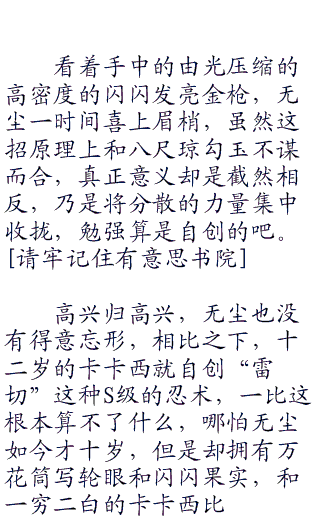 看着手中的由光压缩的
高密度的闪闪发亮金枪，无
尘一时间喜上眉梢，虽然这
招原理上和八尺琼勾玉不谋
而合，真正意义却是截然相
反，乃是将分散的力量集中
收拢，勉强算是自创的吧。
[请牢记住有意思书院]
高兴归高兴，无尘也没
有得意忘形，相比之下，十
二岁的卡卡西就自创“雷
切”这种S级的忍术，一比这
根本算不了什么，哪怕无尘
如今才十岁，但是却拥有万
花筒写轮眼和闪闪果实，和
一穷二白的卡卡西比